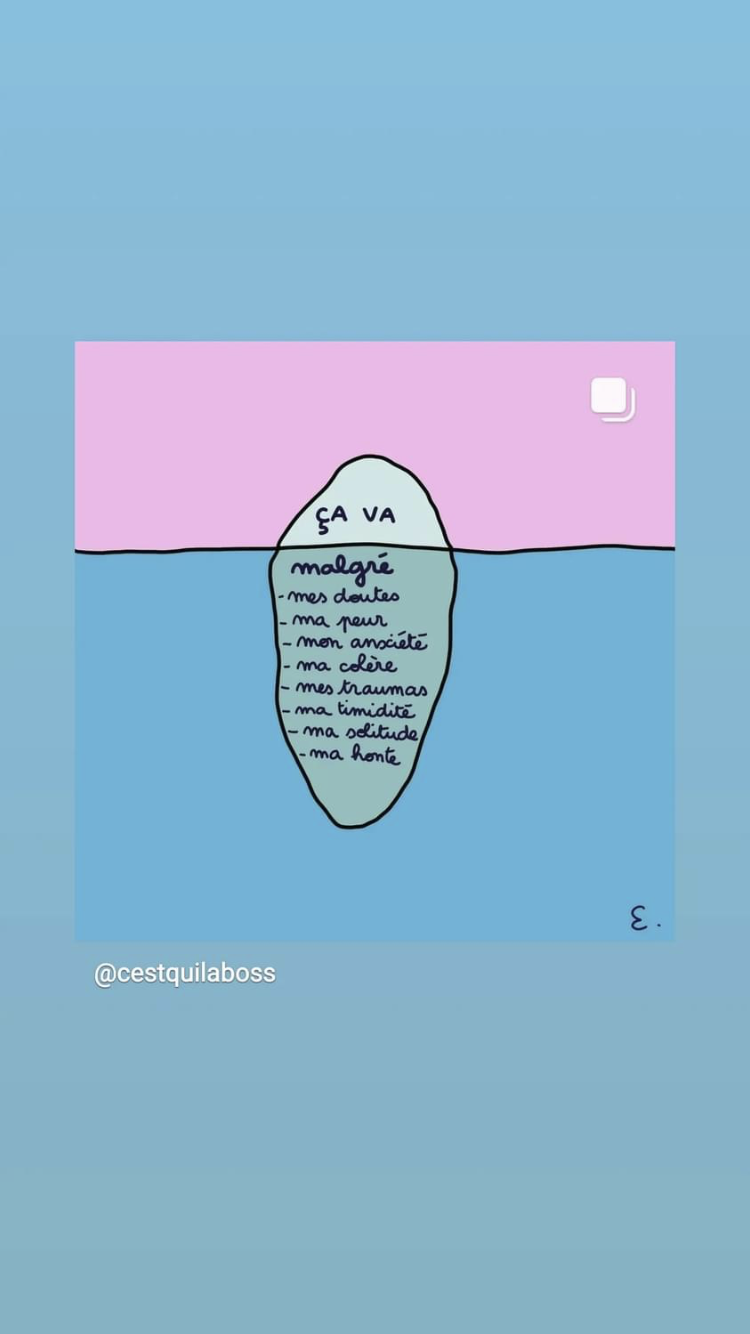 ÇA VA
malgré
- mes doutes
- ma peur
- mon anxiété
- ma colère
- mes traumas
- ma timidité
- ma solitude
- ma honte
E.
@cestquilaboss